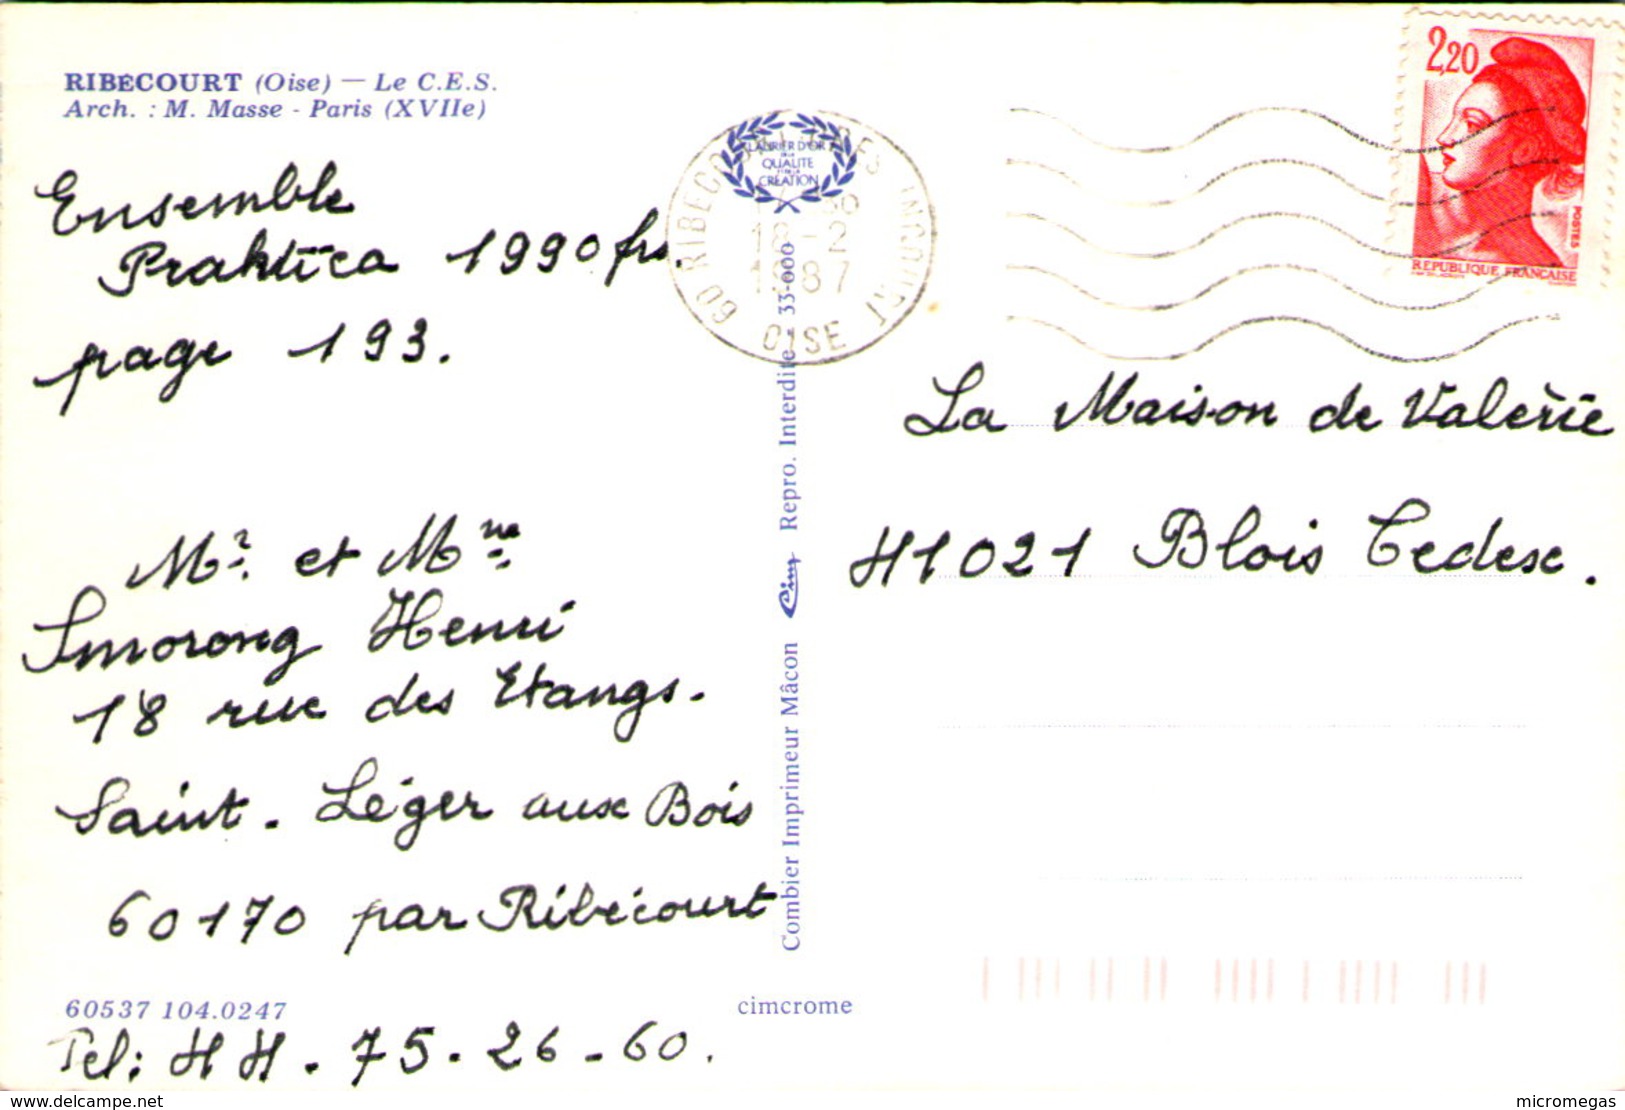 RIBÉCOURT (Oise) — Le C.E.S.
Arch. : M. Masse - Paris (XVIIe)
Ensemble
Praktica 1990 frs.
page 193.
Mr. et Mme.
Smorong Henri
18 rue des Etangs.
Saint-Léger aux Bois
60170 par Ribécourt
60537 104.0247
Tel: 44-75-26-60.
LAURIER D'OR
DE LA
QUALITE
ET DE LA
CRÉATION
60 RIBECOURT DRESLINCOURT
18-2
1987
OISE
Combier Imprimeur Mâcon Cim Repro. Interdite 33-000
cimcrome
2,20
POSTES
REPUBLIQUE FRANÇAISE
La Maison de Valérie
41021 Blois Cedex.
delcampe.net
micromegas